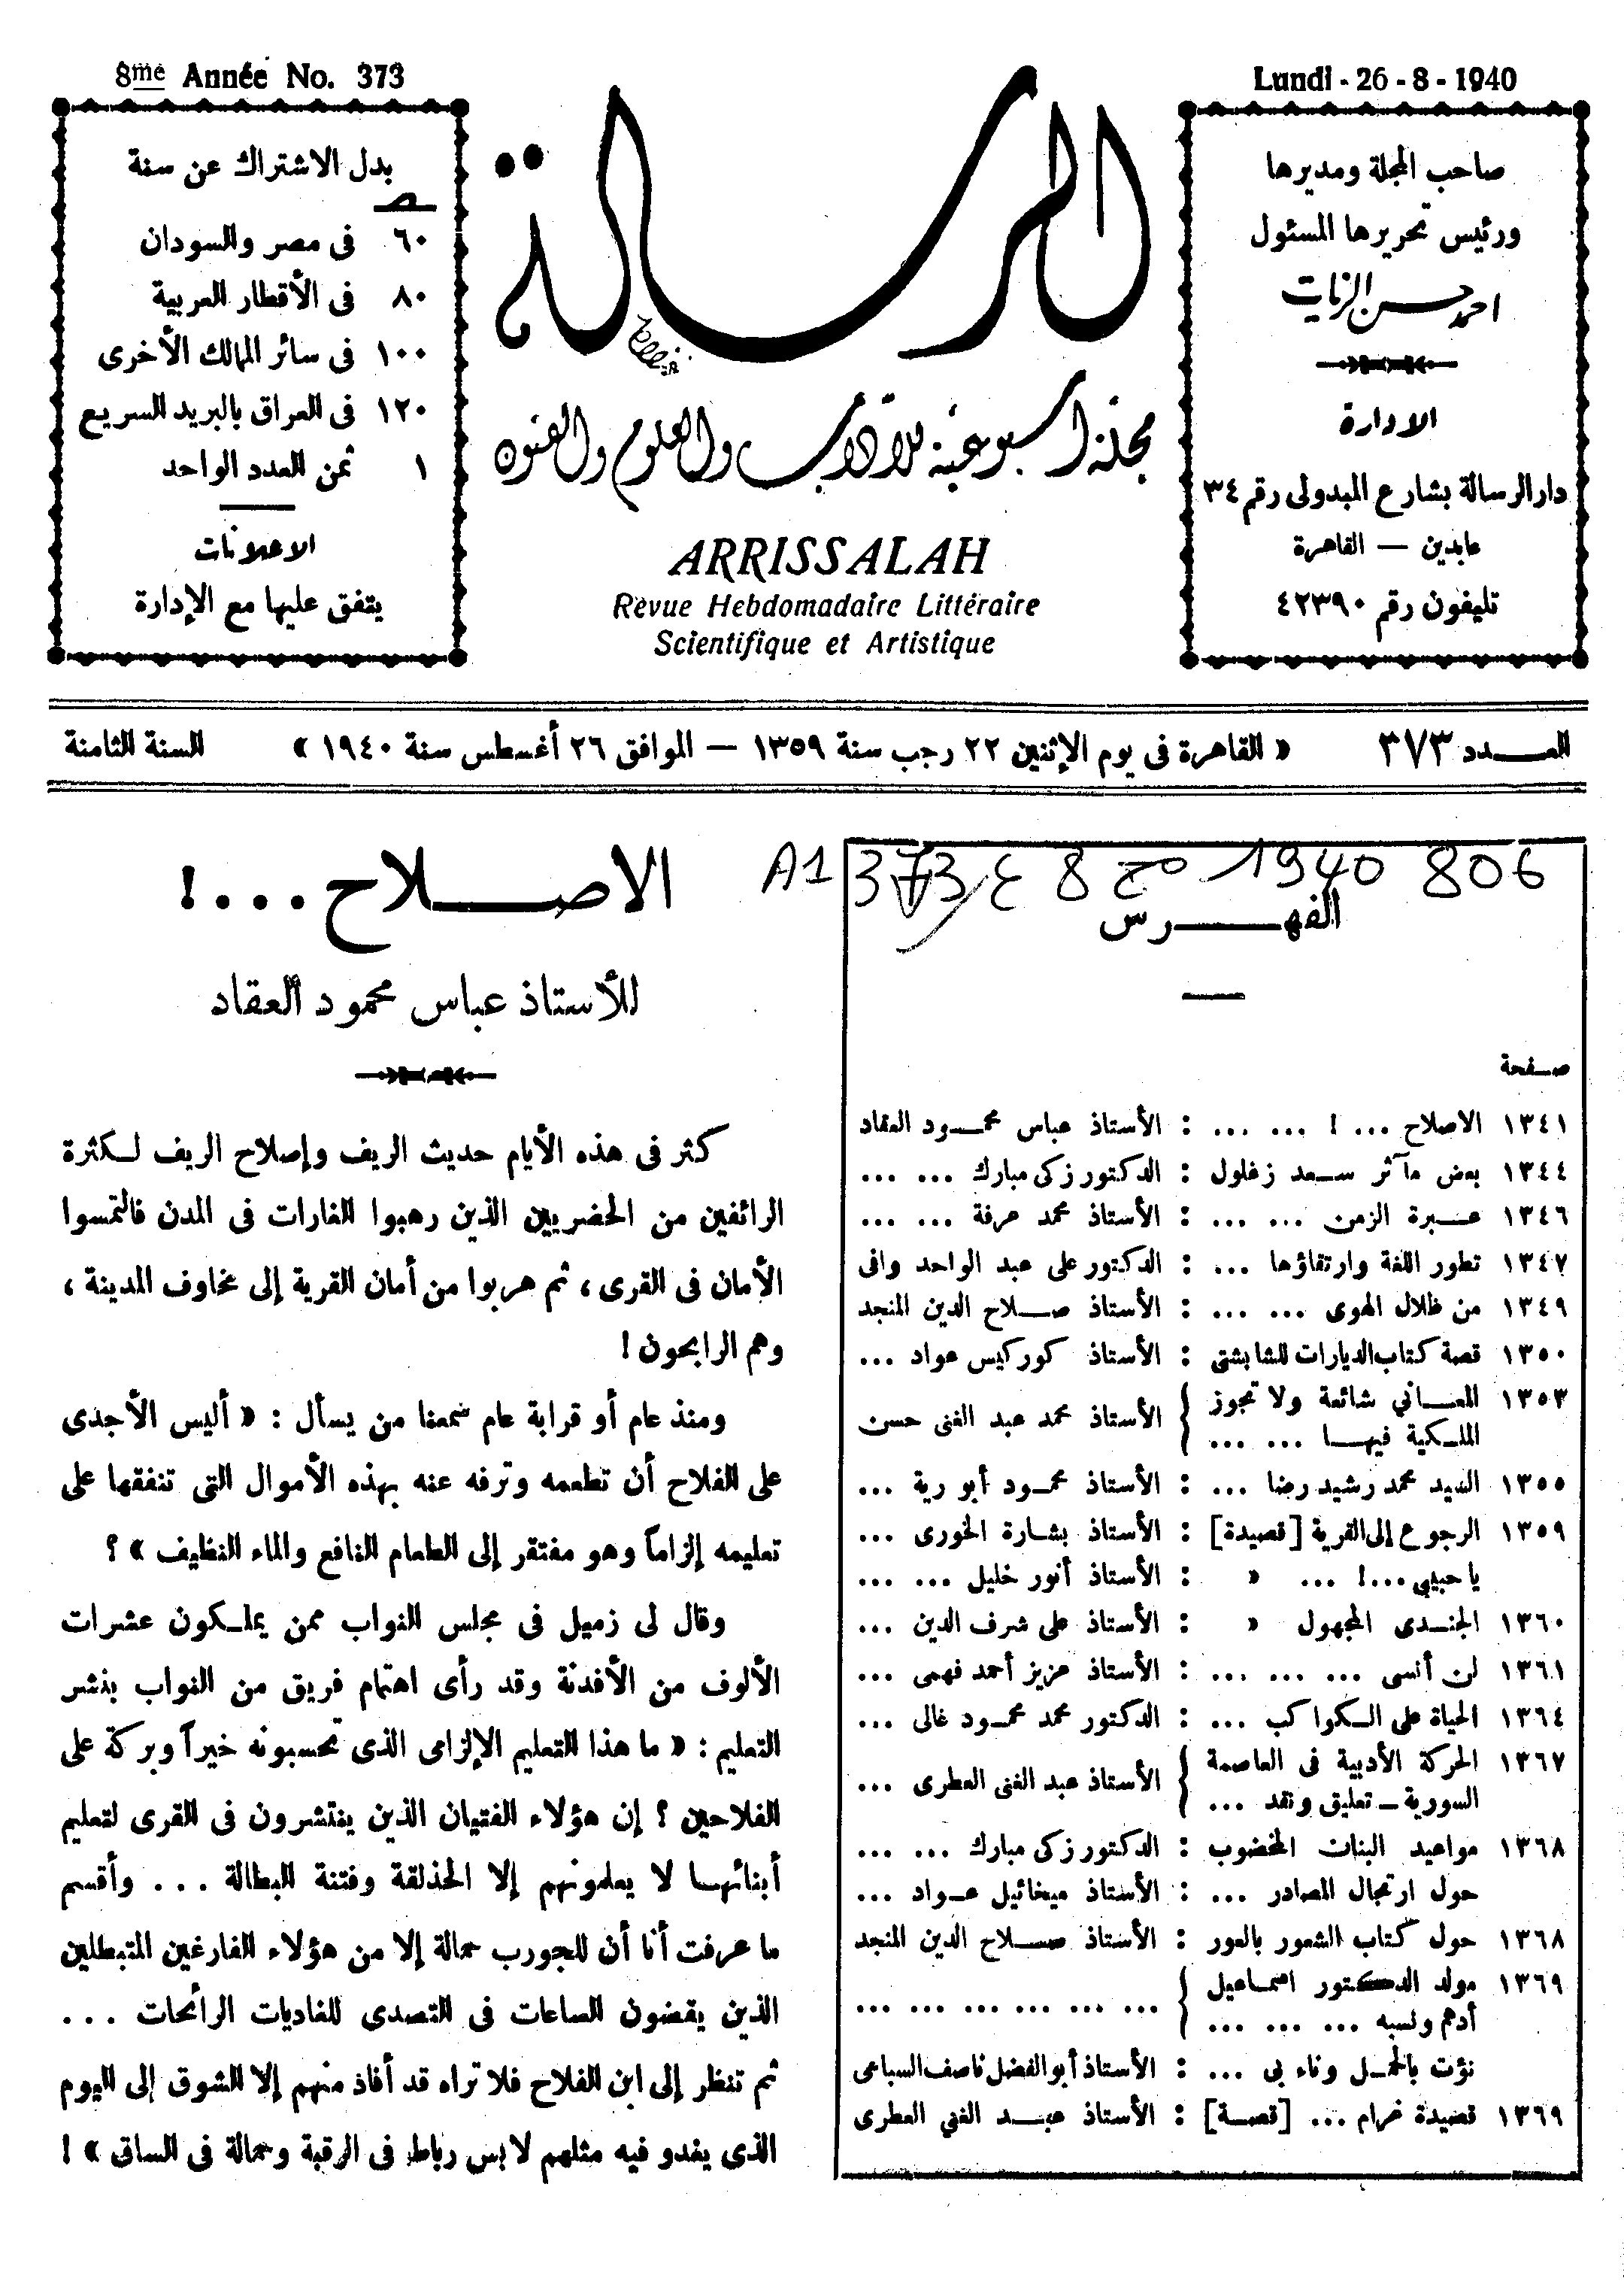 8me Année No. 373
Lundi - 26 - 8 - 1940
صاحب المجلة ومديرها
ورئيس تحريرها المسئول
احمد حسن الزيات
الادارة
دار الرسالة بشارع المبدولى رقم ٣٤
عابدين — القاهرة
تليفون رقم ٤٢٣٩٠
الرسالة
مجلة أسبوعية للآداب والعلوم والفنون
ARRISSALAH
Revue Hebdomadaire Littéraire
Scientifique et Artistique
بدل الاشتراك عن سنة
ص
٦٠ فى مصر والسودان
٨٠ فى الأقطار العربية
١٠٠ فى سائر الممالك الأخرى
١٢٠ فى العراق بالبريد السريع
١ ثمن العدد الواحد
الاعلانات
يتفق عليها مع الإدارة
العـدد ٣٧٣ « القاهرة فى يوم الإثنين ٢٢ رجب سنة ١٣٥٩ — الموافق ٢٦ أغسطس سنة ١٩٤٠ » السنة الثامنة
A1 373 / ع 8 مج 1940 806
الفهـرس
صفحة
١٣٤١ الاصلاح ... ! ... ... : الأستاذ عباس محمود العقاد
١٣٤٤ بعض مآثر سعد زغلول : الدكتور زكى مبارك ... ...
١٣٤٦ عبرة الزمن ... ... : الأستاذ محمد عرفة ... ...
١٣٤٧ تطور اللغة وارتقاؤها ... : الدكتور على عبد الواحد وافى
١٣٤٩ من ظلال الهوى ... ... : الأستاذ صلاح الدين المنجد
١٣٥٠ قصة كتاب الديارات للشابشتى : الأستاذ كوركيس عواد ...
١٣٥٣ المعاني شائعة ولا تجوز الملكية فيها ... ... } الأستاذ محمد عبد الغنى حسن
١٣٥٥ السيد محمد رشيد رضا ... : الأستاذ محمود أبو رية ...
١٣٥٩ الرجوع إلى القرية [قصيدة] : الأستاذ بشارة الخورى ...
يا حبيبي ...! ... « : الأستاذ أنور خليل ... ...
١٣٦٠ الجندى المجهول « : الأستاذ على شرف الدين ...
١٣٦١ لن أنسى ... ... ... : الأستاذ عزيز أحمد فهمى ...
١٣٦٤ الحياة على الكواكب ... : الدكتور محمد محمود غالى ...
١٣٦٧ الحركة الأدبية فى العاصمة السورية ــ تعليق ونقد ... } الأستاذ عبد الغنى العطرى ...
١٣٦٨ مواعيد البنات المخضوب : الدكتور زكى مبارك ... ...
حول ارتجال المصادر ... : الأستاذ ميخائيل عواد ...
١٣٦٨ حول كتاب الشعور بالعور : الأستاذ صلاح الدين المنجد
١٣٦٩ مولد الدكتور اسماعيل أدهم ونسبه ... ... ... } ... ... ... ... ... ...
نؤت بالحمل وناء بى ... : الأستاذ أبو الفضل ناصف السباعى
١٣٦٩ قصيدة غرام ... [قصة] : الأستاذ عبد الغني العطرى
الاصـلاح ...!
للأستاذ عباس محمود العقاد
كثر فى هذه الأيام حديث الريف وإصلاح الريف لكثرة
الرائفين من الحضريين الذين رهبوا الغارات فى المدن فالتمسوا
الأمان فى القرى ، ثم هربوا من أمان القرية إلى مخاوف المدينة ،
وهم الرابحون !
ومنذ عام أو قرابة عام سمعنا من يسأل : « أليس الأجدى
على الفلاح أن تطعمه وترفه عنه بهذه الأموال التى تنفقها على
تعليمه إلزاماً وهو مفتقر إلى الطعام النافع والماء النظيف » ؟
وقال لى زميل فى مجلس النواب ممن يملكون عشرات
الألوف من الأفدنة وقد رأى اهتمام فريق من النواب بنشر
التعليم : « ما هذا التعليم الإلزامى الذى تحسبونه خيراً وبركة على
الفلاحين ؟ إن هؤلاء الفتيان الذين ينتشرون فى القرى لتعليم
أبنائهـا لا يعلمونهم إلا الحذلقة وفتنة البطالة ... وأقسم
ما عرفت أنا أن للجورب حمالة إلا من هؤلاء الفارغين المتبطلين
الذين يقضون الساعات فى التصدى للغاديات الرائحات ...
ثم تنظر إلى ابن الفلاح فلا تراه قد أفاد منهم إلا الشوق إلى اليوم
الذى يغدو فيه مثلهم لابس رباط فى الرقبة وحمالة فى الساق » !